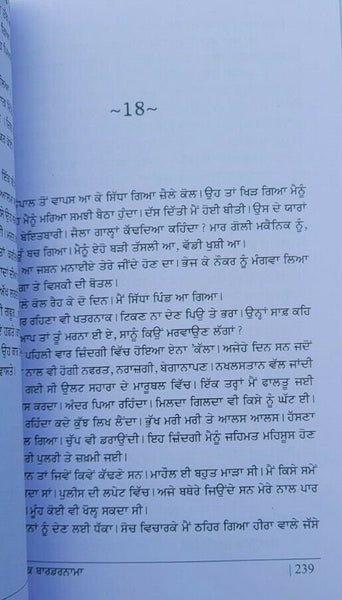 ~18~
ਪਾਲ ਤੋਂ ਵਾਪਸ ਆ ਕੇ ਸਿੱਧਾ ਗਿਆ ਜ਼ੇਲੇ ਕੋਲ। ਉਹ ਤਾਂ ਖਿੜ ਗਿਆ ਮੈਨੂੰ
ਮੈਨੂੰ ਮਰਿਆ ਸਮਝੀ ਬੈਠਾ ਹੁੰਦਾ। ਦੱਸ ਦਿੱਤੀ ਮੈਂ ਹੋਈ ਬੀਤੀ। ਉਸ ਦੇ ਯਾਰਾਂ
ਬੇਇਤਬਾਰੀ। ਜੈਲਾ ਗਾਲ੍ਹਾਂ ਕੱਢਦਿਆ ਕਹਿੰਦਾ? ਮਾਰ ਗੋਲੀ ਮਕੈਨਿਕ ਨੂੰ,
ਬਚ ਗਿਆ। ਮੈਨੂੰ ਏਹੋ ਬੜੀ ਤੱਸਲੀ ਆ, ਵੱਡੀ ਖੁਸ਼ੀ ਆ।
ਆ ਜਸ਼ਨ ਮਨਾਈਏ ਤੇਰੇ ਜੀਂਦੇ ਹੋਣ ਦਾ। ਭੇਜ ਕੇ ਨੌਕਰ ਨੂੰ ਮੰਗਵਾ ਲਿਆ
ਗਾ ਤੇ ਵਿਸਕੀ ਦੀ ਬੋਤਲ।
ਲੇ ਕੋਲ ਰੈਹ ਕੇ ਦੋ ਦਿਨ। ਮੈਂ ਸਿੱਧਾ ਪਿੰਡ ਆ ਗਿਆ।
ਰ ਰਹਿਣਾ ਵੀ ਖਤਰਨਾਕ। ਟਿਕਣ ਨਾ ਦੇਣ ਪਿਉ ਤੇ ਭਰਾ। ਉਨ੍ਹਾਂ ਸਾਫ਼ ਕਹਿ
ਆਪ ਤਾਂ ਤੂੰ ਮਰਨਾ ਈ ਏ, ਸਾਨੂੰ ਕਿਉਂ ਮਰਵਾਉਣ ਲੱਗਾਂ?
ਪਹਿਲੀ ਵਾਰ ਜ਼ਿੰਦਗੀ ਵਿੱਚ ਹੋਇਆ ਏਨਾ 'ਕੱਲਾ। ਅਜੇਹੇ ਦਿਨ ਸਨ ਜਦੋਂ
ਨ ਵੀ ਹੋਗੀ ਨਫਰਤ, ਨਰਾਜ਼ਗੀ, ਬੇਗਾਨਾਪਣ। ਨਖਲਸਤਾਨ ਵੱਲ ਜਾਂਦੀ
ਗਈ ਸੀ ਉਲਟ ਸਹਾਰਾ ਦੇ ਮਾਰੂਥਲ ਵਿੱਚ। ਇੱਕ ਤਰ੍ਹਾਂ ਮੈਂ ਫਾਲਤੂ ਜਈ
ਸ ਕਰਦਾ। ਅੰਦਰ ਪਿਆ ਰਹਿੰਦਾ। ਮਿਲਦਾ ਗਿਲਦਾ ਵੀ ਕਿਸੇ ਨੂੰ ਘੱਟ ਈ।
ਰਹਿੰਦਾ ਕਦੇ ਕੁੱਝ ਲਿਖ ਲੈਂਦਾ। ਭੁੱਖ ਮਰੀ ਮਰੀ ਤੇ ਆਲਸ ਆਲਸ। ਹੱਸਣਾ
ਲ ਗਿਆ। ਚੁੱਪ ਵੀ ਡਰਾਉਂਦੀ। ਇਹ ਜ਼ਿੰਦਗੀ ਮੈਨੂੰ ਜ਼ਹਿਮਤ ਮਹਿਸੂਸ ਹੋਣ
ਪੁਲਰੀ ਤੇ ਜ਼ਖ਼ਮੀ ਜਈ।
ਨ ਤਾਂ ਜਿਵੇਂ ਕਿਵੇਂ ਕੱਢਣੇ ਸਨ। ਮਾਹੌਲ ਈ ਬਹੁਤ ਮਾੜਾ ਸੀ। ਮੈਂ ਕਿਸੇ ਸਮੇਂ
ਦਾ ਸਾਂ। ਪੁਲੀਸ ਦੀ ਲਪੇਟ ਵਿੱਚ। ਅਜੇ ਬਥੇਰੇ ਜਿਉਂਦੇ ਸਨ ਮੇਰੇ ਨਾਲ ਪਾਰ
ਮੂੰਹ ਕੋਈ ਵੀ ਖੋਲ੍ਹ ਸਕਦਾ ਸੀ।
ਨਾਂ ਨੂੰ ਦੇਣ ਲਈ ਧੱਕਾ। ਸੋਚ ਵਿਚਾਰਕੇ ਮੈਂ ਠਹਿਰ ਗਿਆ ਹੀਰਾ ਵਾਲੇ ਜੱਸੇ
ਕ ਬਾਰਡਰਨਾਮਾ | 239